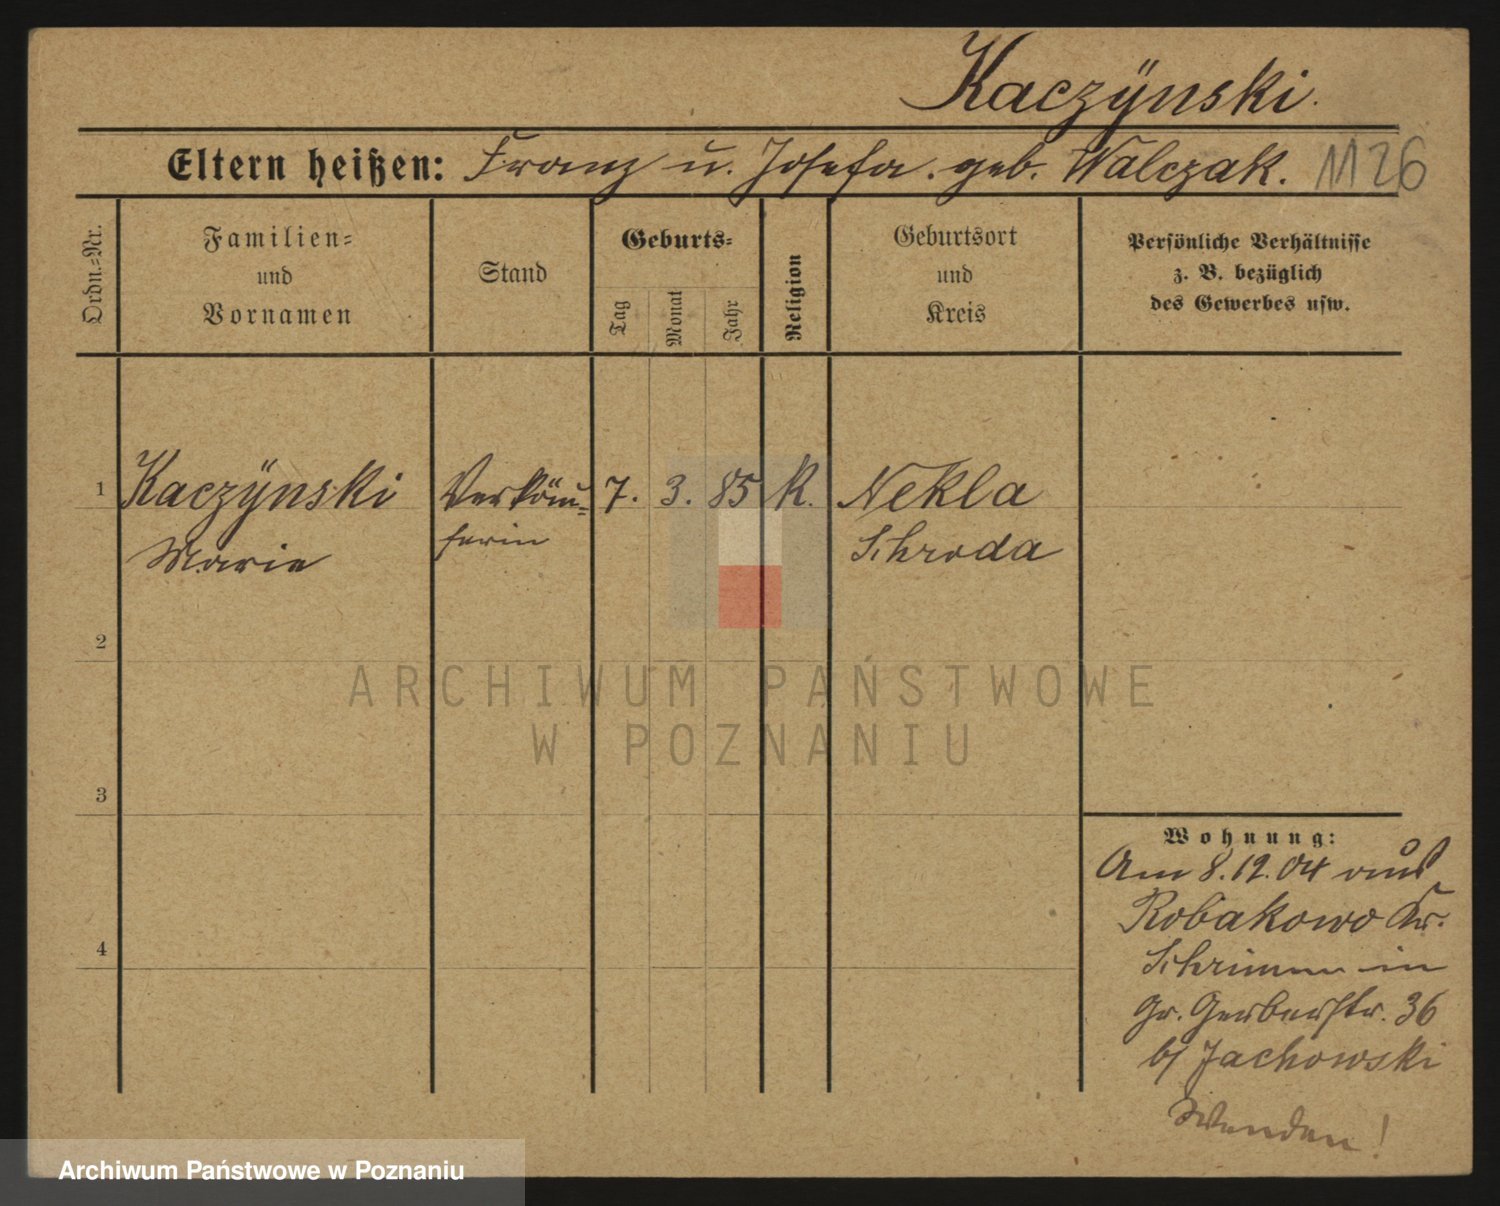 Kaczÿnski.
Eltern heißen: Franz u. Josefa. geb. Walczak. 1126
Ordn.=Nr.
Familien=
und
Vornamen
Stand
Geburts=
Tag
Monat
Jahr
Religion
Geburtsort
und
Kreis
Persönliche Verhältnisse
z. B. bezüglich
des Gewerbes usw.
1 Kaczÿnski Verkäu= 7. 3. 85 K. Nekla
Marie ferin Schroda
2
ARCHIWUM PAŃSTWOWE
W POZNANIU
3
Wohnung:
Am 8.12.04 aus
Robakowo Kr.
4
Schrimm in
Gr. Gerberstr. 36
b/ Jachowski
Wenden!
Archiwum Państwowe w Poznaniu